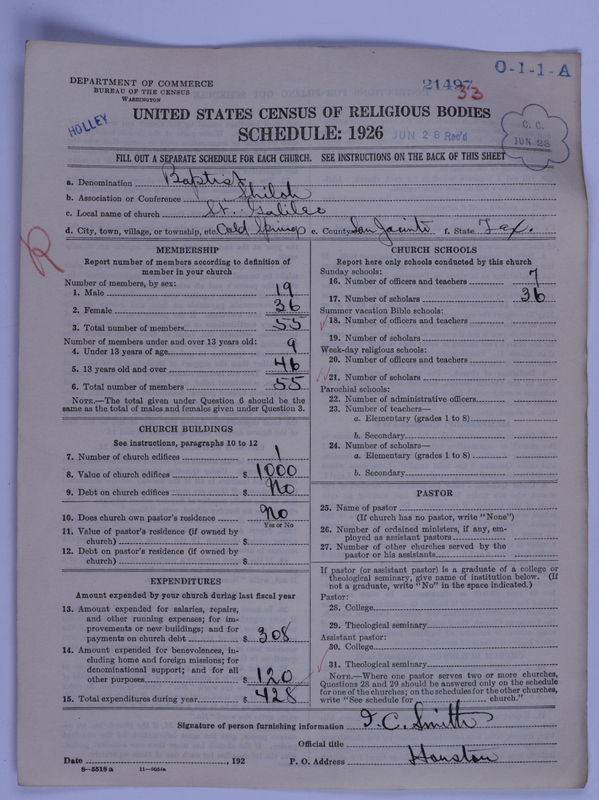 O-1-1-A
DEPARTMENT OF COMMERCE
BUREAU OF THE CENSUS
WASHINGTON
21497
33
HOLLEY
UNITED STATES CENSUS OF RELIGIOUS BODIES
SCHEDULE: 1926
JUN 28 Rec'd
C. C.
JUN 28
FILL OUT A SEPARATE SCHEDULE FOR EACH CHURCH. SEE INSTRUCTIONS ON THE BACK OF THIS SHEET
a. Denomination Baptist
b. Association or Conference Shiloh
c. Local name of church St. Galileo
d. City, town, village, or township, etc Cold Springs e. County San Jacinto f. State Tex.
R
MEMBERSHIP
Report number of members according to definition of
member in your church
Number of members, by sex:
1. Male 19
2. Female 36
3. Total number of members 55
Number of members under and over 13 years old:
4. Under 13 years of age 9
5. 13 years old and over 46
6. Total number of members 55
NOTE.—The total given under Question 6 should be the
same as the total of males and females given under Question 3.
CHURCH BUILDINGS
See instructions, paragraphs 10 to 12
7. Number of church edifices 1
8. Value of church edifices $ 1000
9. Debt on church edifices $ No
10. Does church own pastor's residence No
Yes or No
11. Value of pastor's residence (if owned by
church) $
12. Debt on pastor's residence (if owned by
church) $
EXPENDITURES
Amount expended by your church during last fiscal year
13. Amount expended for salaries, repairs,
and other running expenses; for im-
provements or new buildings; and for
payments on church debt $ 308
14. Amount expended for benevolences, in-
cluding home and foreign missions; for
denominational support; and for all
other purposes $ 120
15. Total expenditures during year $ 428
CHURCH SCHOOLS
Report here only schools conducted by this church
Sunday schools:
16. Number of officers and teachers 7
17. Number of scholars 36
Summer vacation Bible schools:
18. Number of officers and teachers
19. Number of scholars
Week-day religious schools:
20. Number of officers and teachers
21. Number of scholars
Parochial schools:
22. Number of administrative officers
23. Number of teachers—
a. Elementary (grades 1 to 8)
b. Secondary
24. Number of scholars—
a. Elementary (grades 1 to 8)
b. Secondary
PASTOR
25. Name of pastor
(If church has no pastor, write "None")
26. Number of ordained ministers, if any, em-
ployed as assistant pastors
27. Number of other churches served by the
pastor or his assistants
If pastor (or assistant pastor) is a graduate of a college or
theological seminary, give name of institution below. (If
not a graduate, write "No" in the space indicated.)
Pastor:
28. College
29. Theological seminary
Assistant pastor:
30. College
31. Theological seminary
NOTE.—Where one pastor serves two or more churches,
Questions 28 and 29 should be answered only on the schedule
for one of the churches; on the schedules for the other churches,
write "See schedule for church."
Signature of person furnishing information F. C. Smith
Official title
Date , 192 P. O. Address Houston
8-5518 a 11-9364a